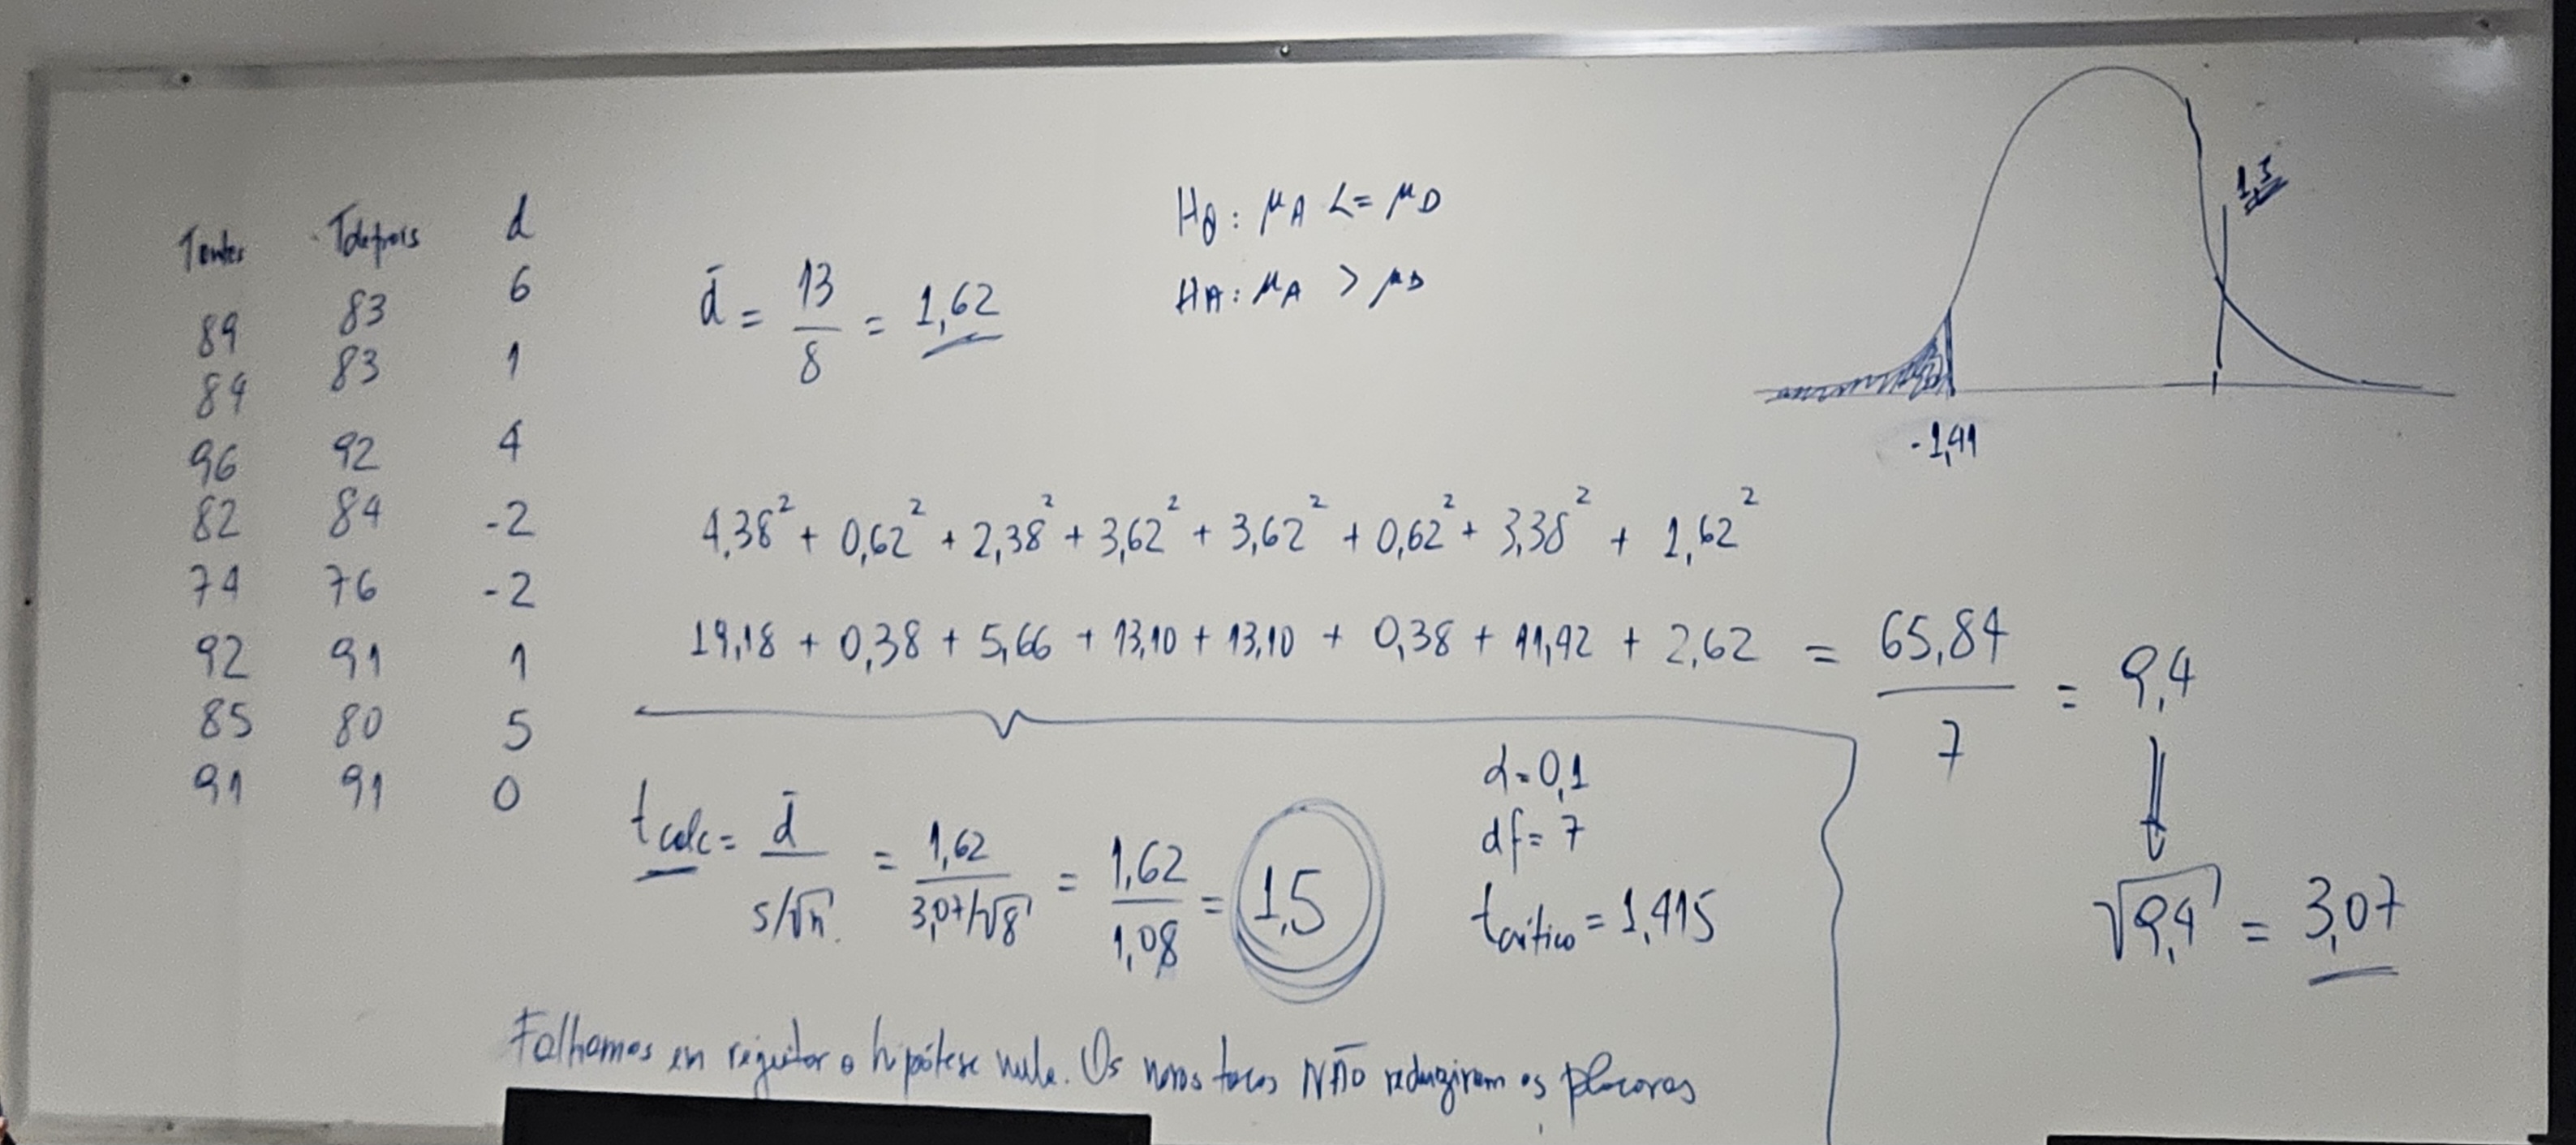 Tantes Tdepois d
89 83 6
84 83 1
96 92 4
82 84 -2
74 76 -2
92 91 1
85 80 5
91 91 0
d̄ = 13/8 = 1,62
H0: μA <= μD
HA: μA > μD
1,5
-1,41
4,38² + 0,62² + 2,38² + 3,62² + 3,62² + 0,62² + 3,38² + 1,62²
19,18 + 0,38 + 5,66 + 13,10 + 13,10 + 0,38 + 11,42 + 2,62 = 65,84/7 = 9,4
√9,4 = 3,07
tcalc = d̄/(s/√n) = 1,62/(3,07/√8) = 1,62/1,08 = 1,5
α=0,1
df=7
tcrítico = 1,415
Falhamos em regeitar a hipótese nula. Os novos tacos NÃO reduziram os placares